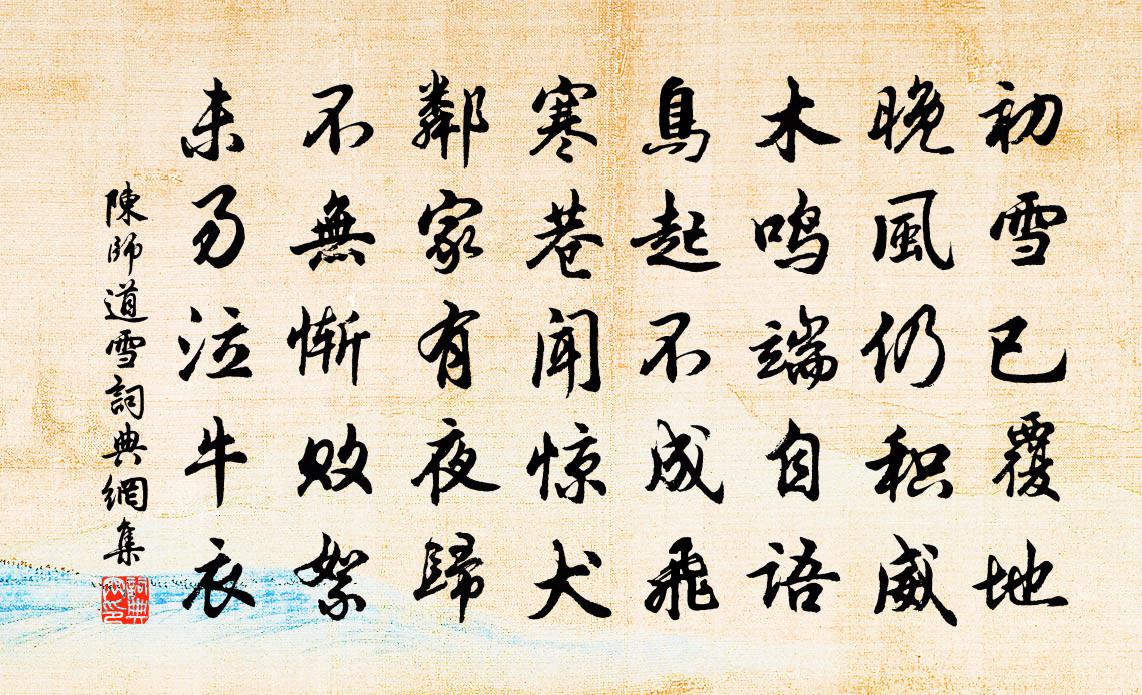 初雪已覆地
晚風仍积威
木鸣端自語
鳥起不成飛
寒巷闻惊犬
鄰家有夜歸
不無惭敗絮
未易泣牛衣
陳師道雪詞典網集